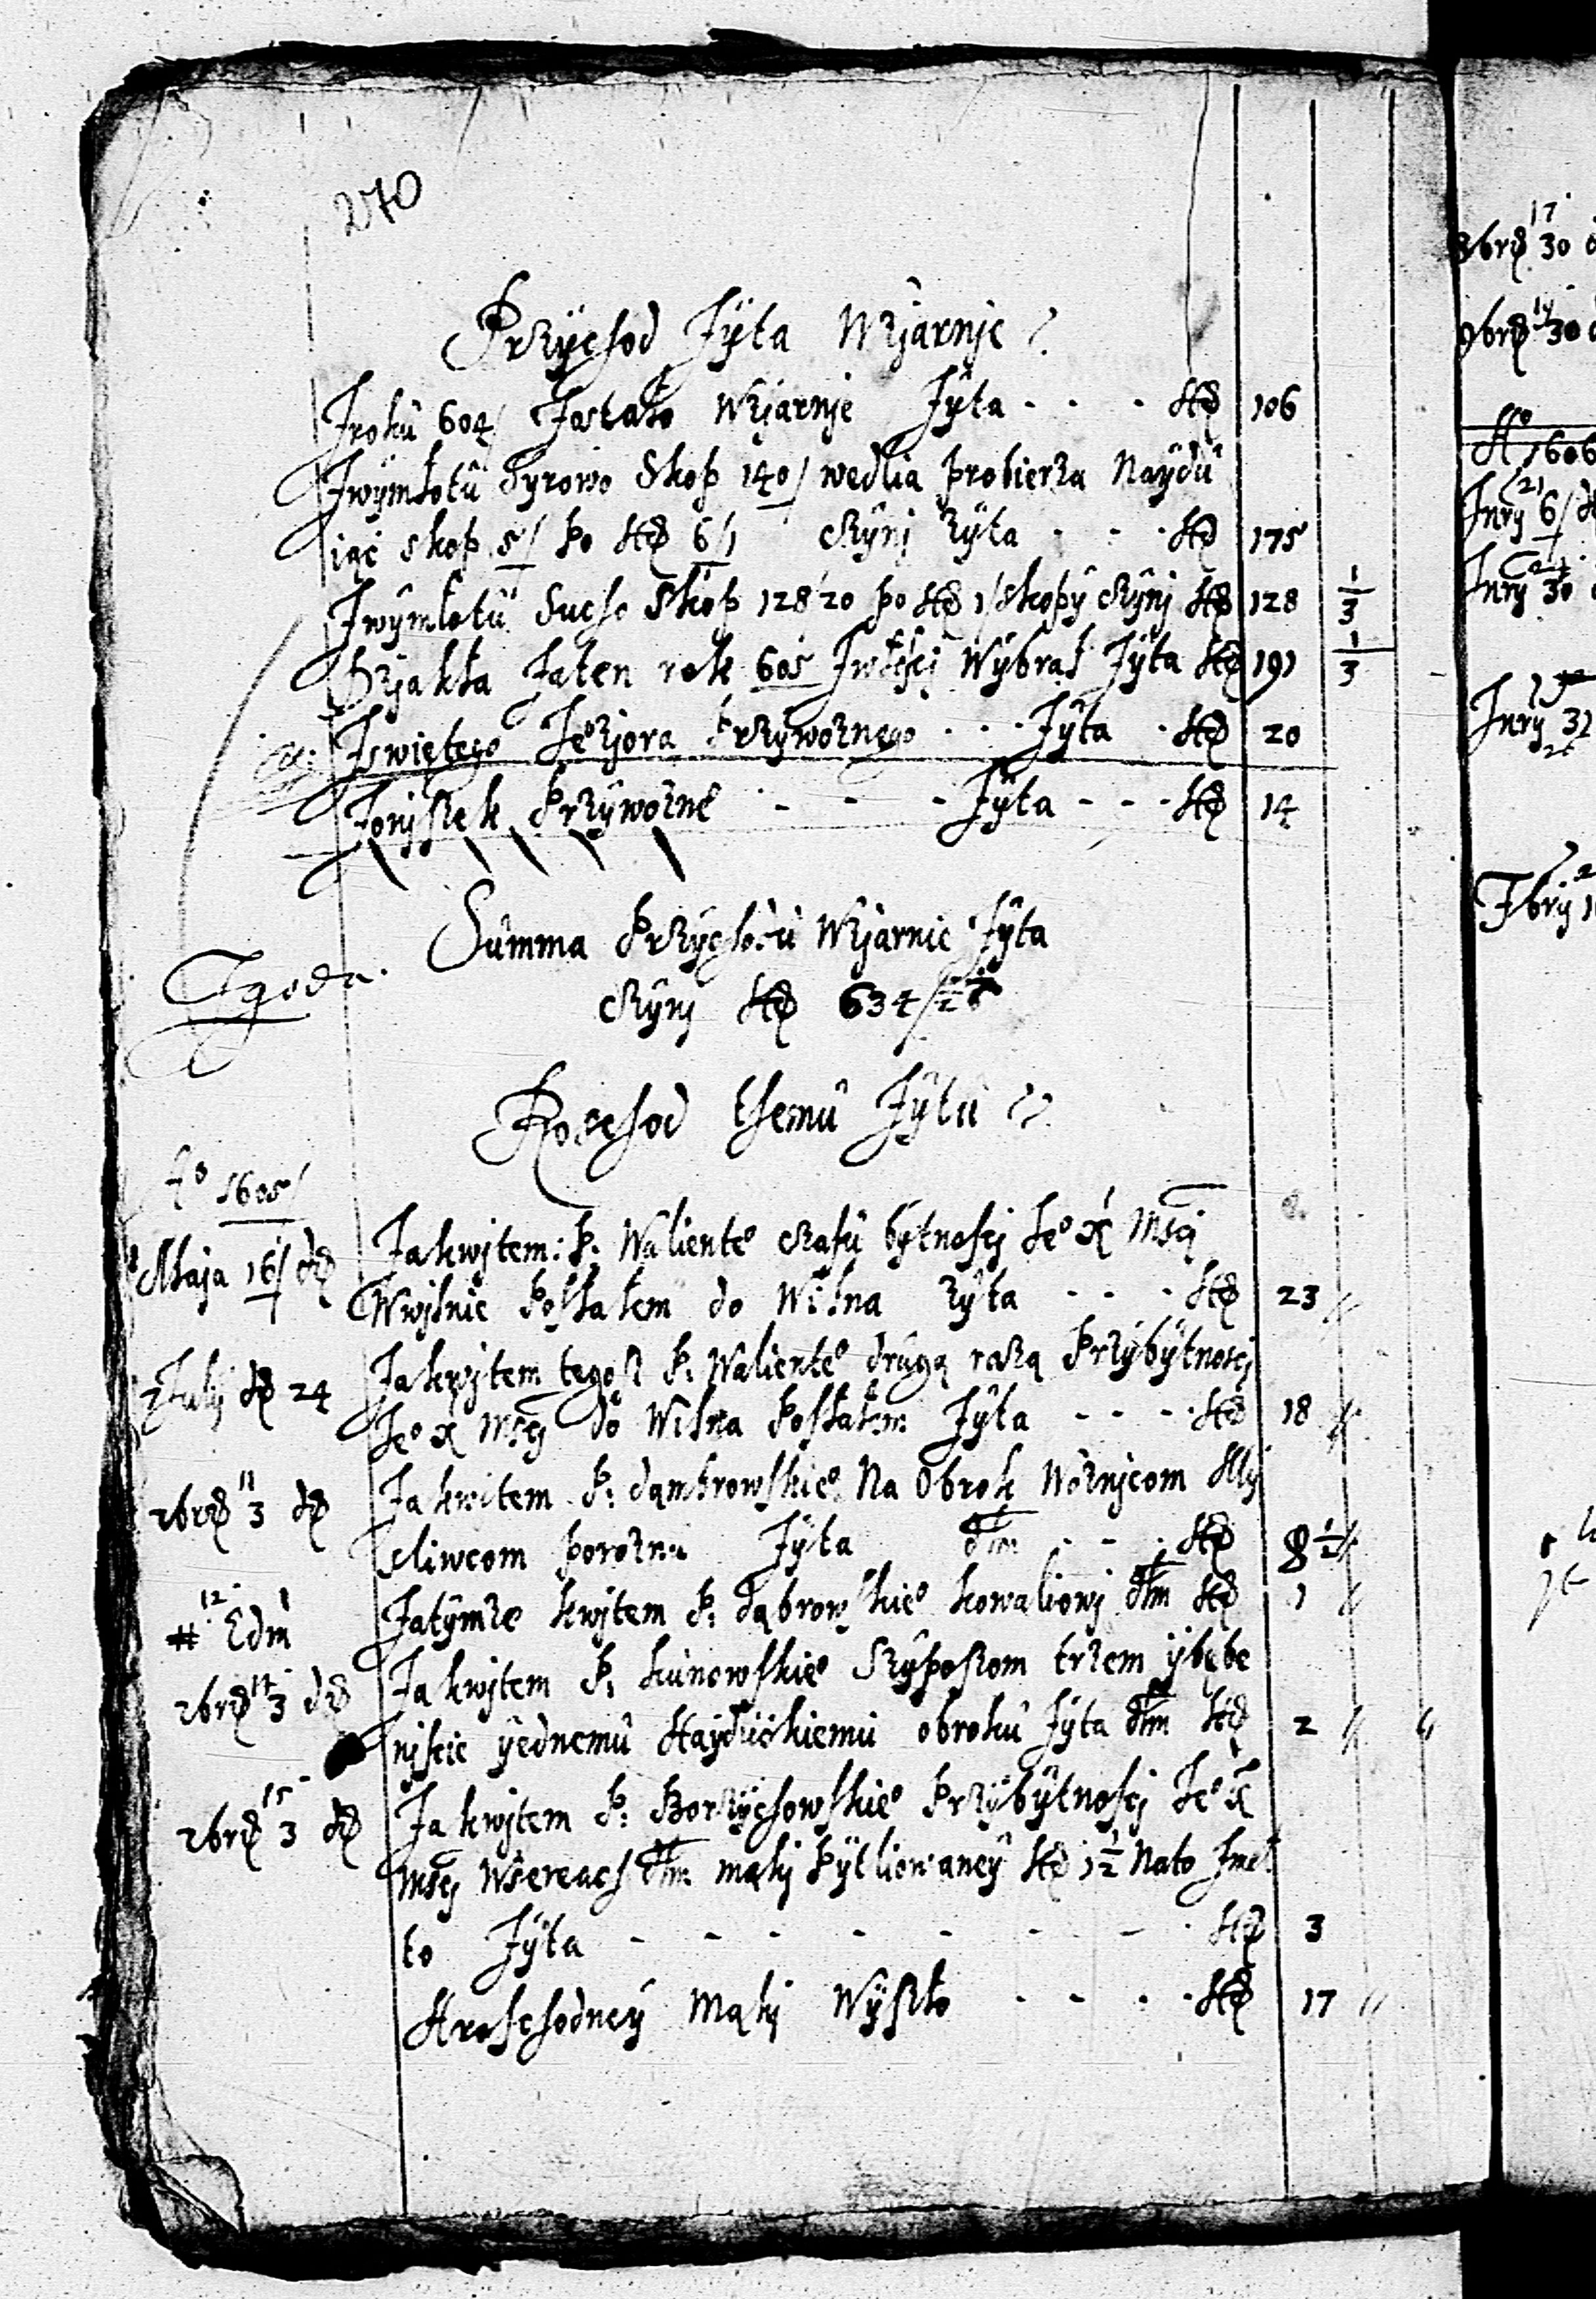 270
Przychod Zyta Wziarnie
Zroku 604/ Zostało Wziarnie Zyta - - - 106
Zwymłotu Syrowo Skop 140/ wedlia probierza Naydu
iąc skop 5/ po 6/1 czyni zyta - - - 175
Zwymłotu Sucho Skop 128 20 po 1/ skopy czyni 128 1/3
Dziakła Zaten rok 605 Zwłosci Wybrał Zyta 191 1/3
Zswiętego Jeziora Przywoznego - - - Zyta - 20
Zoniszek Przywozne - - - Zyta - - - 14
Summa Przychodu Wziarnie Zyta
czyni 634/
Zgoda.
Roschod themu Zytu
Ao 1605/
Maja 16/ Zakwitem: P. Waliente czasu bytnosci Jeo X Mści
Wwilnie Posłałem do Wilna zyta - - - 23
July 24 Zakwitem tegosz P. Waliente drugą razą Przybytnosci
Jeo X Mści do Wilna Posłałem Zyta - - - 18
11
2brz 3 Zakwitem P. dąmbrowskieo Na Obrok Woznicom My
sliwcom poroznu Zyta dłm - - - 8 1/2
12
Edm Zatymze kwitem P. Dąbrowskieo kowaliowi dłm 1
14
2brz 3 Zakwitem P. kunowskieo Szyposzom trzem ybębe
niscie yednemu Hayduckiemu obroku Zyta dłm 2
15
2brz 3 Zakwitem P. Borzychowskieo Przybytnosci Jeo X
Mści Wsereach dłm mąki Pytliowaney 1 1/2 Nato Zmeł
to Zyta - - - - - - - 3
Aroschodney Mąki Wyszło - - - - 17
17
8brz 30
9brz 30
Ao 1606
21
Inry 6/
Inry 30
Inry 31
Fbry